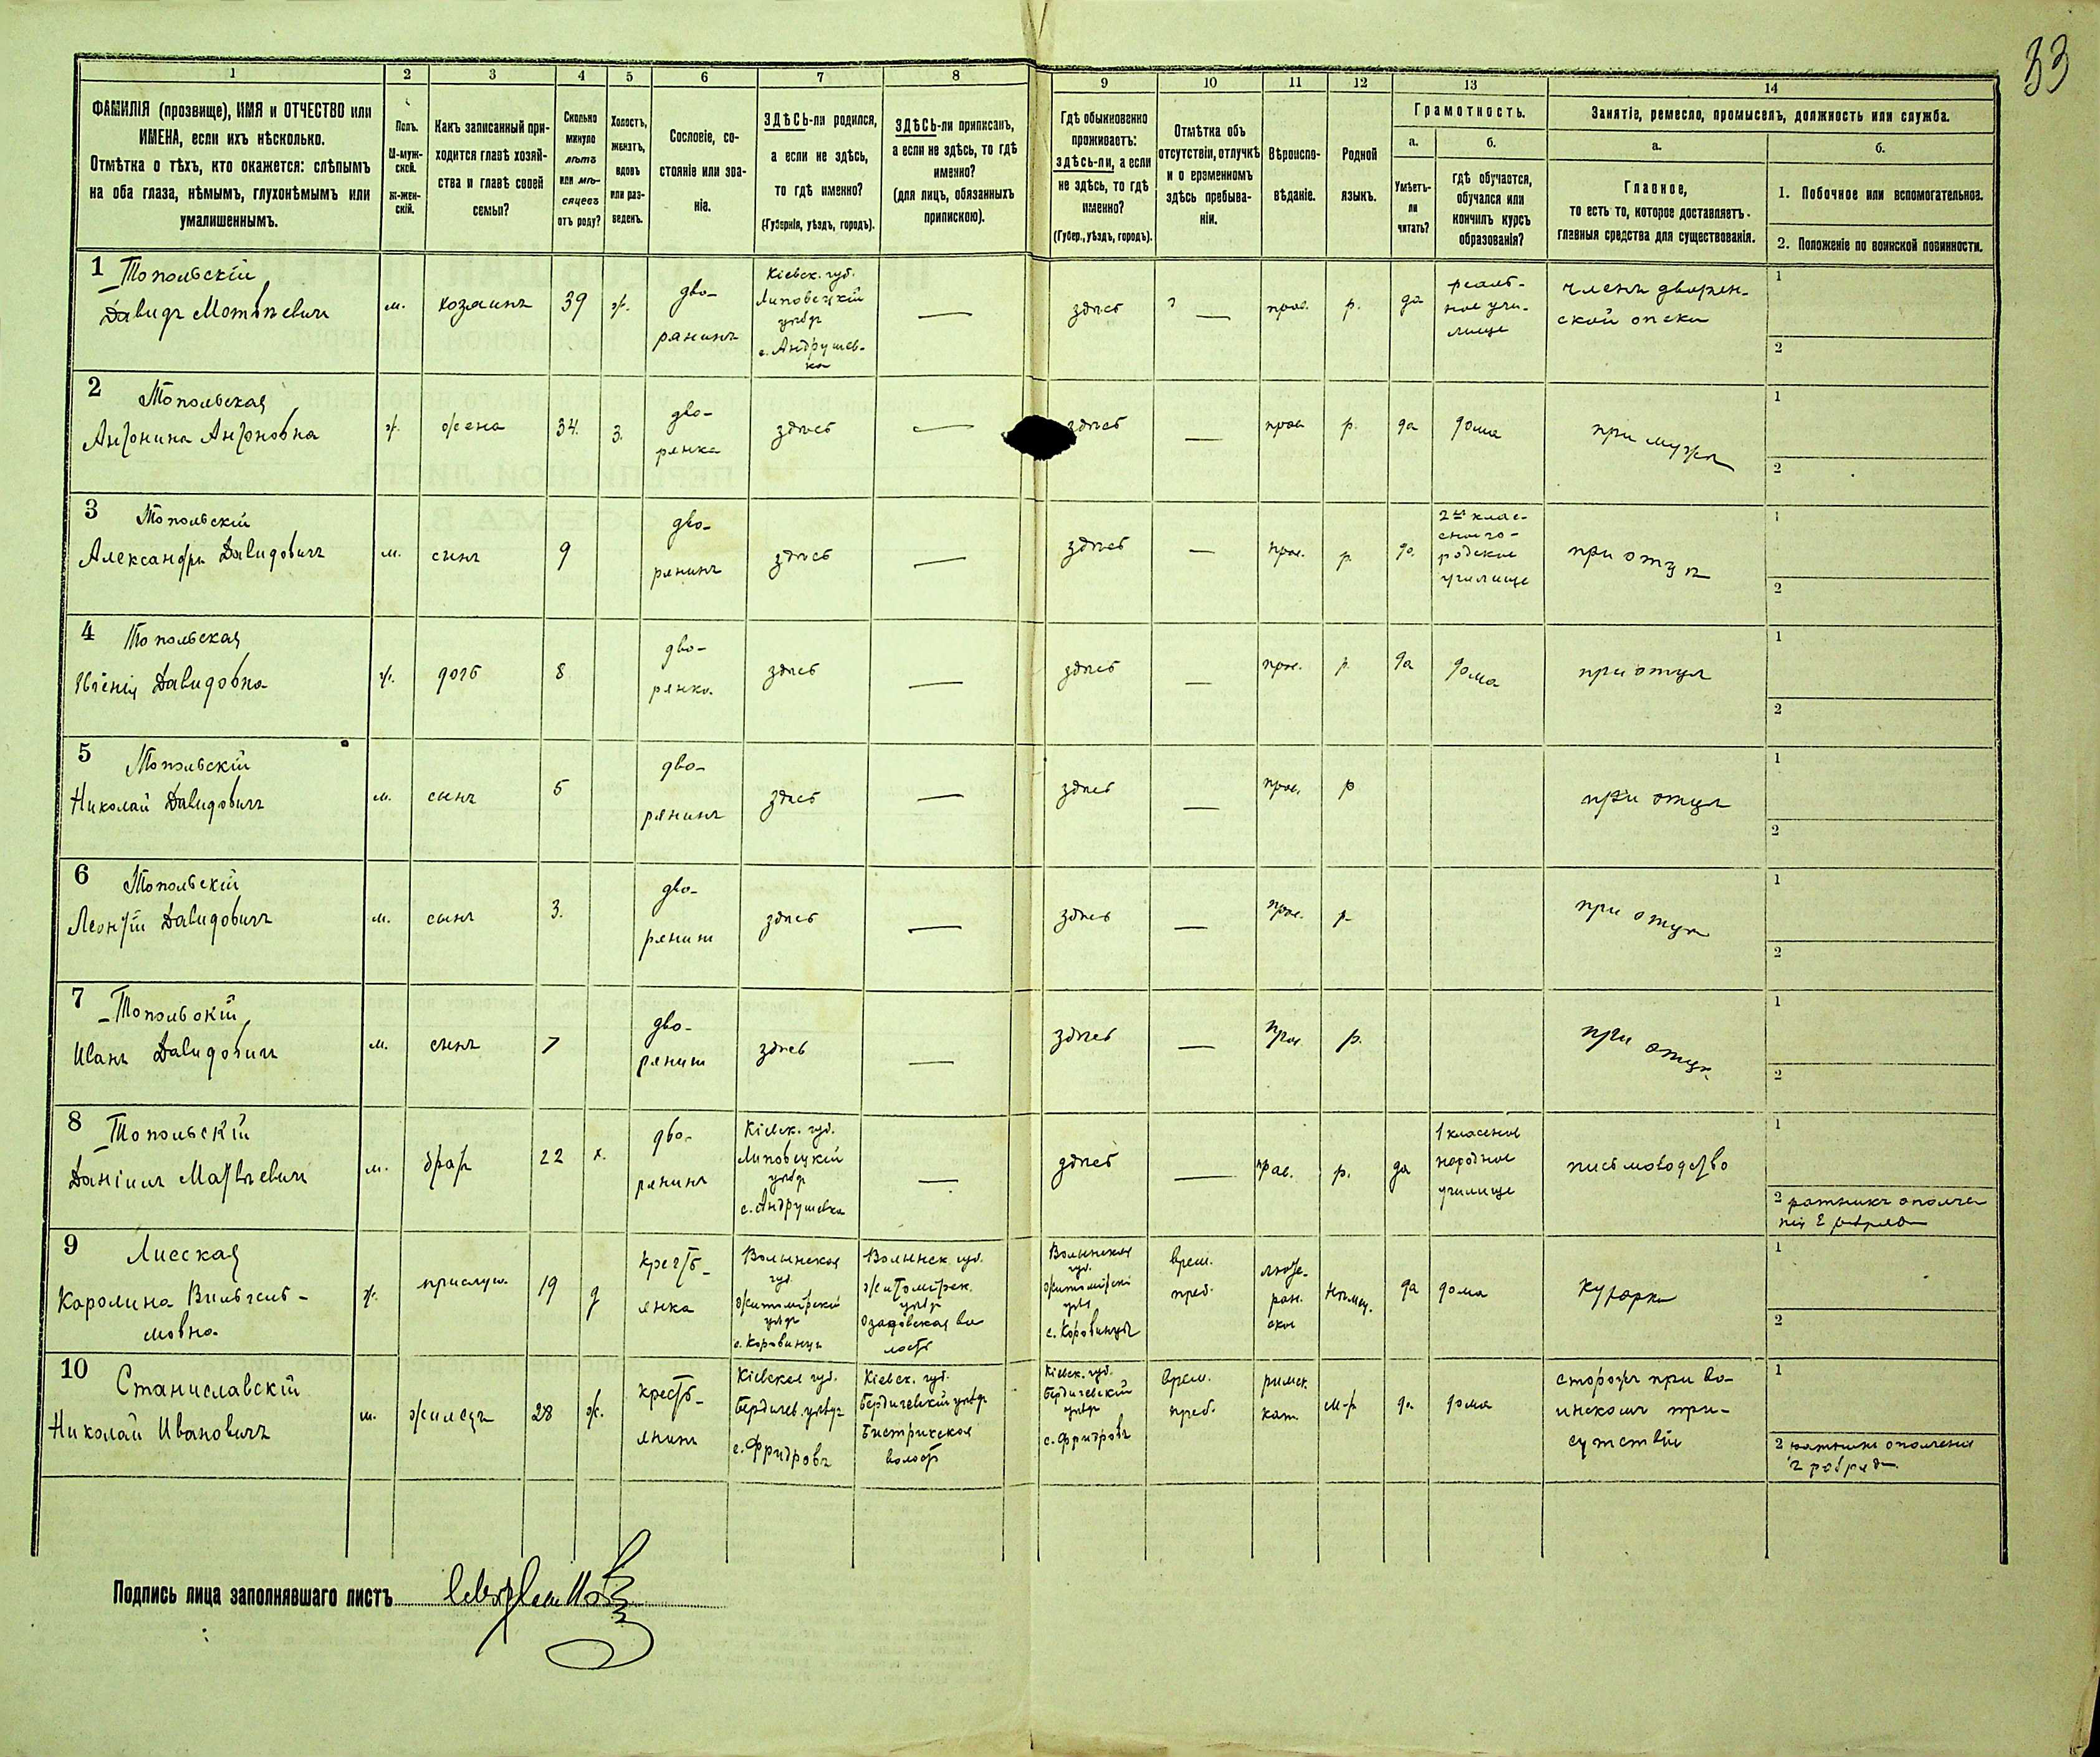 33
1 2 3 4 5 6 7 8 9 10 11 12 13 14
ФАМИЛІЯ (прозвище), ИМЯ и ОТЧЕСТВО или
ИМЕНА, если ихъ нѣсколько.
Отмѣтка о тѣхъ, кто окажется: слѣпымъ
на оба глаза, нѣмымъ, глухонѣмымъ или
умалишеннымъ.
Полъ.
М-муж-
ской.
Ж-жен-
скій.
Какъ записанный при-
ходится главѣ хозяй-
ства и главѣ своей
семьи?
Сколько
минуло
лѣтъ
или мѣ-
сяцевъ
отъ роду?
Холостъ,
женатъ,
вдовъ
или раз-
веденъ.
Сословіе, со-
стояніе или зва-
ніе.
ЗДѢСЬ-ли родился,
а если не здѣсь,
то гдѣ именно?
(Губернія, уѣздъ, городъ).
ЗДѢСЬ-ли приписанъ,
а если не здѣсь, то гдѣ
именно?
(для лицъ, обязанныхъ
припискою).
Гдѣ обыкновенно
проживаетъ:
здѣсь-ли, а если
не здѣсь, то гдѣ
именно?
(Губер., уѣздъ, городъ).
Отмѣтка объ
отсутствіи, отлучкѣ
и о временномъ
здѣсь пребыва-
ніи.
Вѣроиспо-
вѣданіе.
Родной
языкъ.
Грамотность.
а.
Умѣетъ-
ли
читать?
б.
гдѣ обучается,
обучался или
кончилъ курсъ
образованія?
Занятіе, ремесло, промыселъ, должность или служба.
а.
Главное,
то есть то, которое доставляетъ
главныя средства для существованія.
б.
1. Побочное или вспомогательное.
2. Положеніе по воинской повинности.
1 Топольскій
Давидъ Мотѣевичъ
м.
хозяинъ
39
ж.
дво-
рянинъ
Кіевск. губ.
Липовецкій
уѣздъ
с. Андрушев-
ка
—
здѣсь
—
прав.
р.
да
реаль-
ное учи-
лище
членъ дворян-
ской опеки
1
2
2 Топольская
Антонина Антоновна
ж.
жена
34.
з.
дво-
рянка
здѣсь
—
здѣсь
—
прав.
р.
да
дома
при мужѣ
1
2
3 Топольскій
Александръ Давидовичъ
м.
сынъ
9
дво-
рянинъ
здѣсь
—
здѣсь
—
прав.
р.
да
2хъ клас-
сное го-
родское
училище
при отцѣ
1
2
4 Топольская
Евгенія Давидовна
ж.
дочь
8
дво-
рянка
здѣсь
—
здѣсь
—
прав.
р.
да
дома
при отцѣ
1
2
5 Топольскій
Николай Давидовичъ
м.
сынъ
5
дво-
рянинъ
здѣсь
—
здѣсь
—
прав.
р
при отцѣ
1
2
6 Топольскій
Леонтій Давидовичъ
м.
сынъ
3.
дво-
рянинъ
здѣсь
—
здѣсь
—
прав.
р.
при отцѣ
1
2
7 Топольскій
Иванъ Давидовичъ
м.
сынъ
дво-
рянинъ
здѣсь
—
здѣсь
—
прав.
р.
при отцѣ
1
2
8 Топольскій
Даніилъ Матвѣевичъ
м.
братъ
22
х.
дво-
рянинъ
Кіевск. губ.
Липовецкій
уѣздъ
с. Андрушевка
—
здѣсь
—
прав.
р.
да
1 класеное
народное
училище
письмоводство
1
2 ратникъ ополче
нія 2 разряда
9 Лисская
Каролина Вильгель-
мовна
ж.
прислуж.
19
д
крестьь-
янка
Волынская
губ.
Житомірскій
уѣздъ
с. Коровинцы
Волынск. губ.
Житомірск.
уѣздъ
волость
Волынская
губ.
Житомірскій
уѣздъ
с. Коровинцы
врем.
преб.
люте-
ран.
ское
Нѣмец.
да
дома
кухарка
1
2
10 Станиславскій
Николай Ивановичъ
м.
жилецъ
28
ж.
кресть-
янинъ
Кіевская губ.
Бердичев. уѣздъ
с. Фридровъ
Кіевск. губ.
Бердичевскій уѣздъ
Бистрикская
волость
Кіевск. губ.
Бердичевскій
уѣздъ
с. Фридровъ
врем.
преб.
римск.
кат.
м-р
да
дома
сторожъ при во-
инскомъ при-
сутствіи
1
2 ратникъ ополченія
2 разряда
Подпись лица заполнявшаго листъ